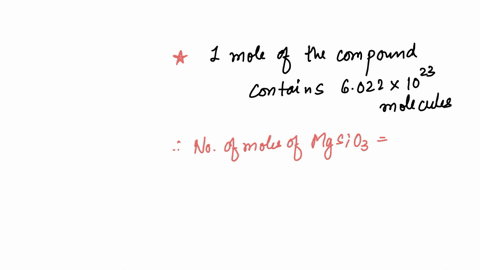 ★ 1 mole of the compound
contains 6.022 × 10²³
molecules
∴ No. of moles of MgSiO₃ =